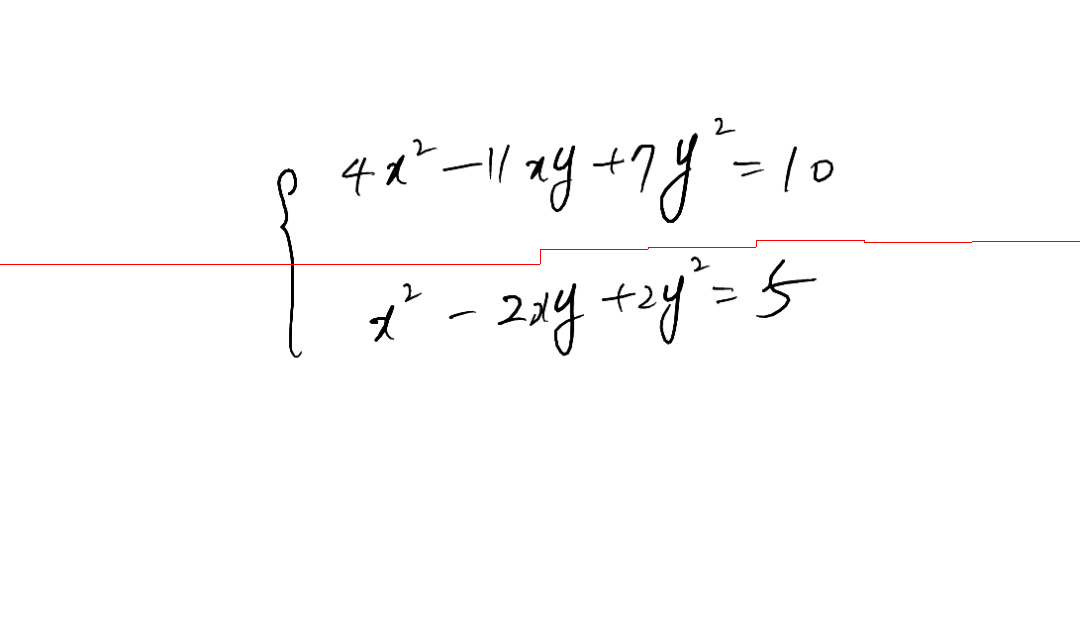 4x² - 11xy + 7y² = 10
x² - 2xy + 2y² = 5